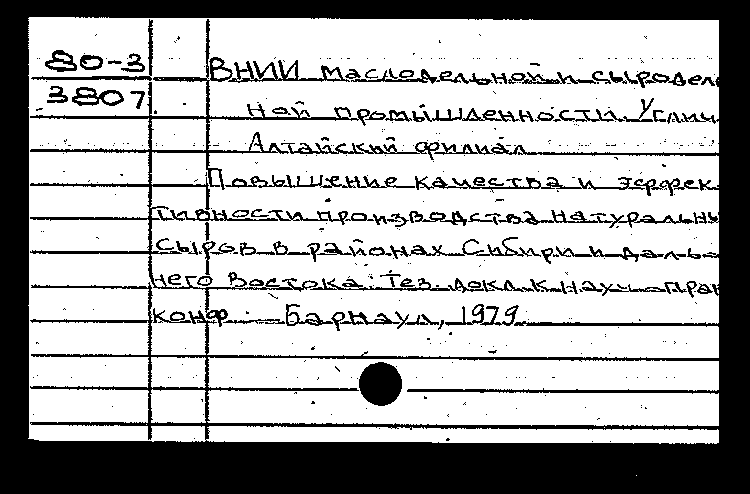 80-3 ВНИИ маслодельной и сыродель
3807 ной промышленности. Углич.
Алтайский филиал
Повышение качества и эффек-
тивности производства натуральны
сыров в районах Сибири и Даль-
него Востока: Тез. докл. к науч.-прак
конф. - Барнаул, 1979